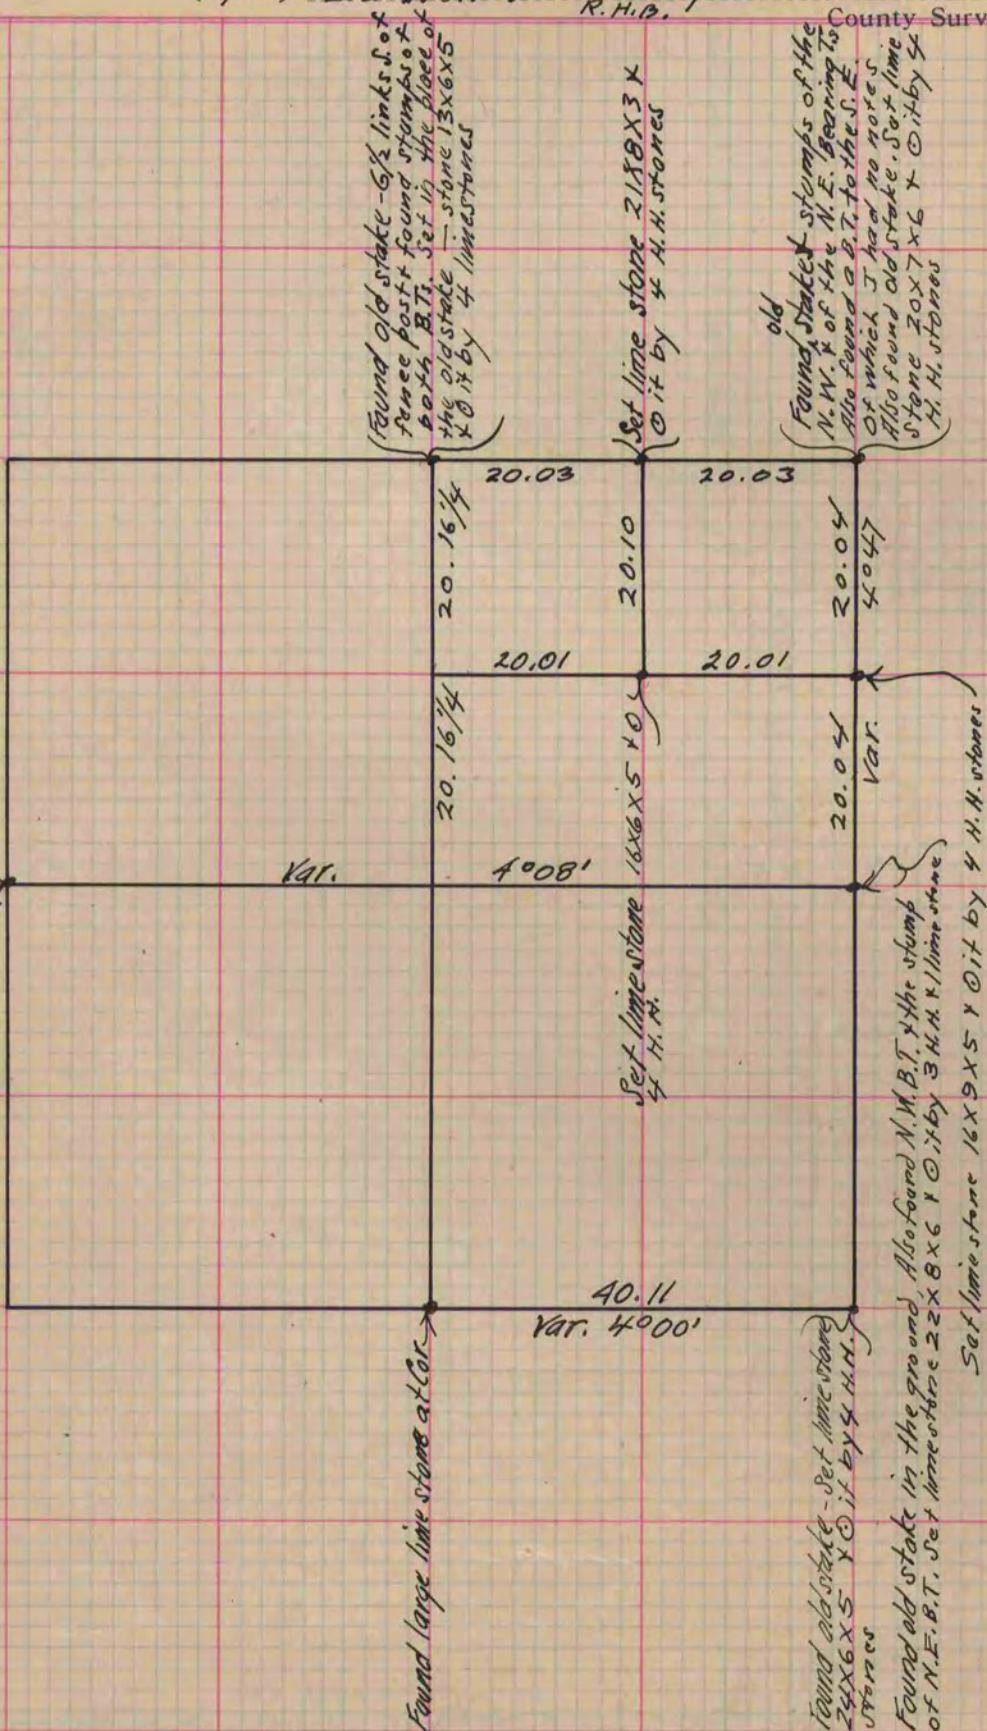 R.H.B.
County Surv
Found old stake - 6½ links S. of
fence post & found stumps of
both B.Ts. Set in the place of
the old stake — stone 13x6x5
& ⊙ it by 4 limestones
Set lime stone 21x8x3 &
⊙ it by 4 H.H. stones
old
Found stake & stumps of the
N.W. & of the N.E. Bearing Ts
Also found a B.T. to the S.E.
of which I had no notes
Also found old stake. Set lime
stone 20x7x6 & ⊙ it by 4
H.H. stones
20.03
20.03
20.16¼
20.10
20.04
4°47
20.01
20.01
20.16¼
20.04
Var.
Var.
4°08'
Set lime stone 16x6x5 & ⊙
4 H.H.
40.11
Var. 4°00'
Found large lime stone at Cor.
Found old stake - Set lime stone
24x6x5 & ⊙ it by 4 H.H.
stones
Found old stake in the ground, Also found N.W.B.T. & the stump
of N.E.B.T. Set lime stone 22x8x6 & ⊙ it by 3 H.H. & 1 lime stone
Set lime stone 16x9x5 & ⊙ it by 4 H.H. stones